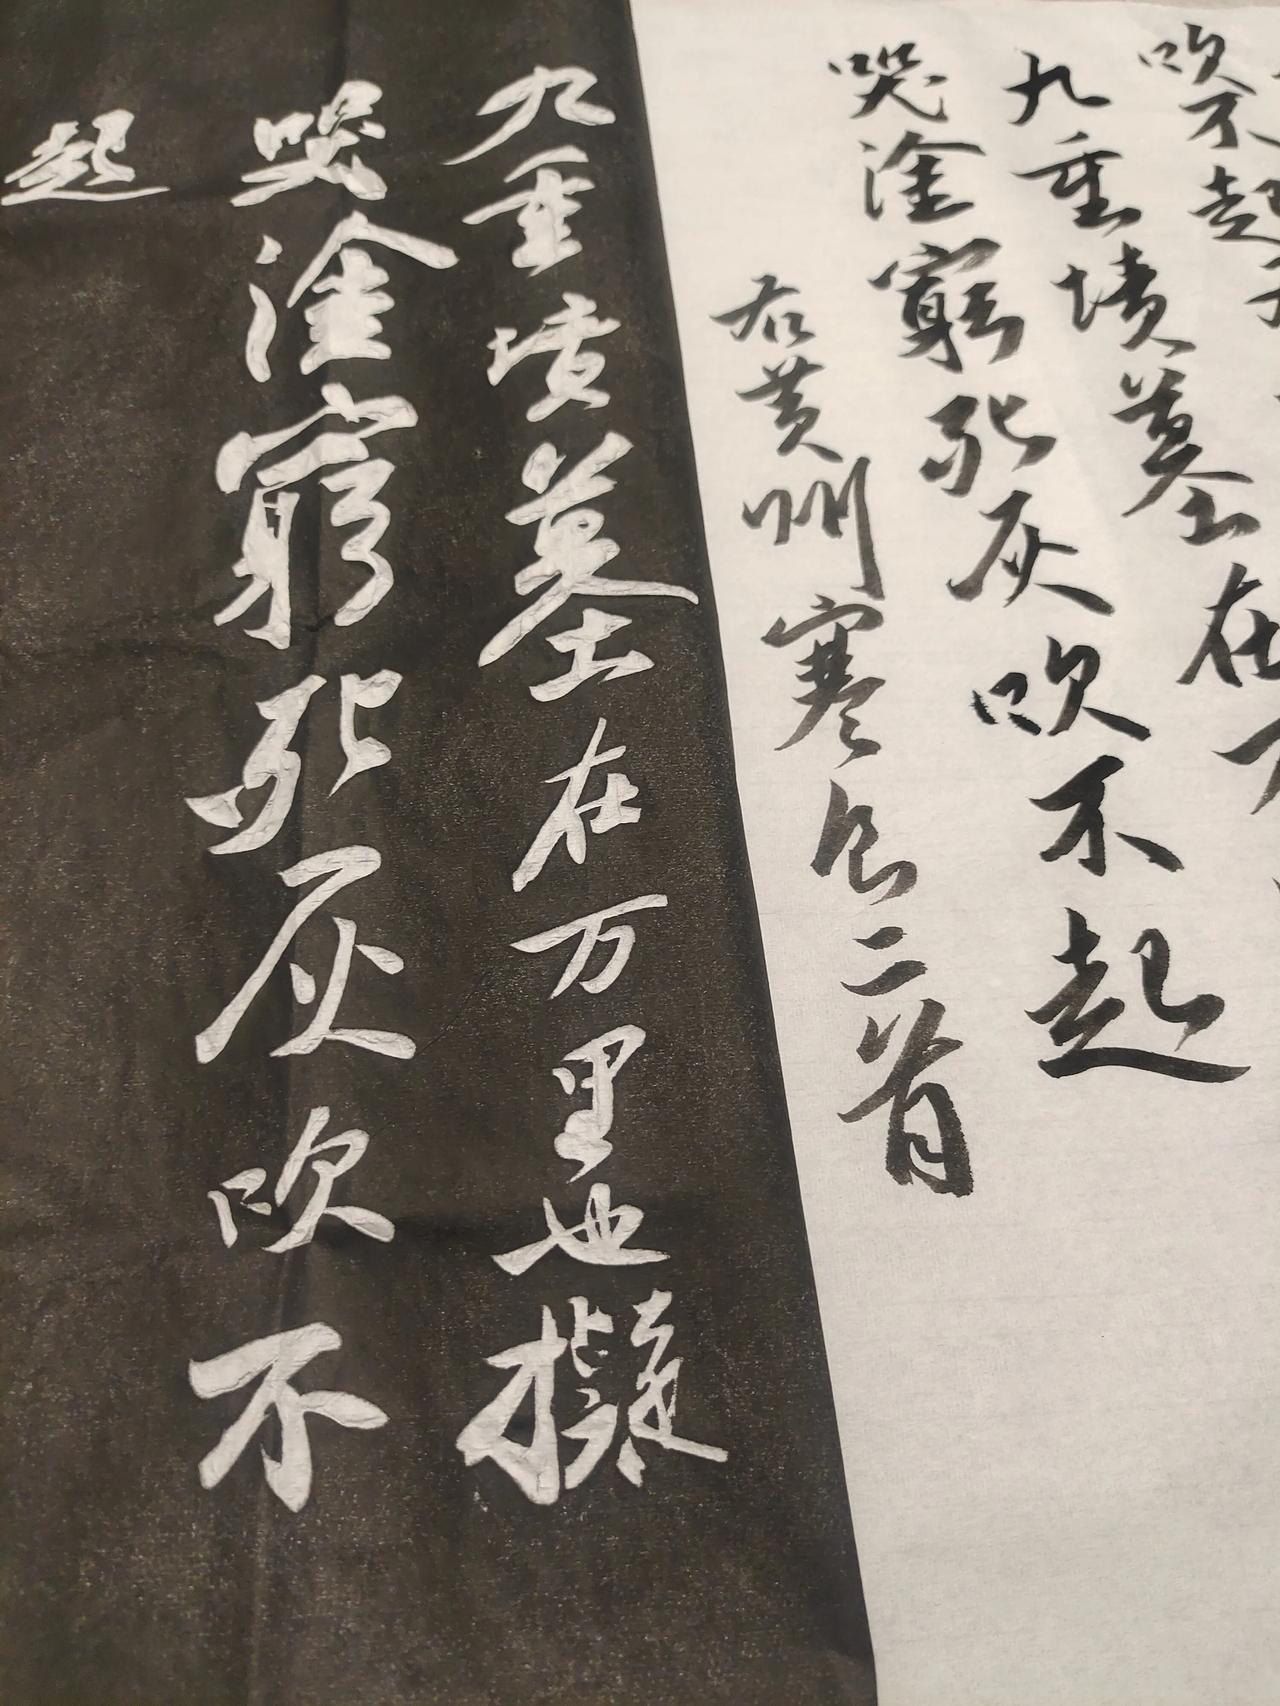 吹不起
九重墳墓在
哭塗窮死灰吹不起
右黄州寒食二首
九重墳墓在万里也擬
哭塗窮死灰吹不
起